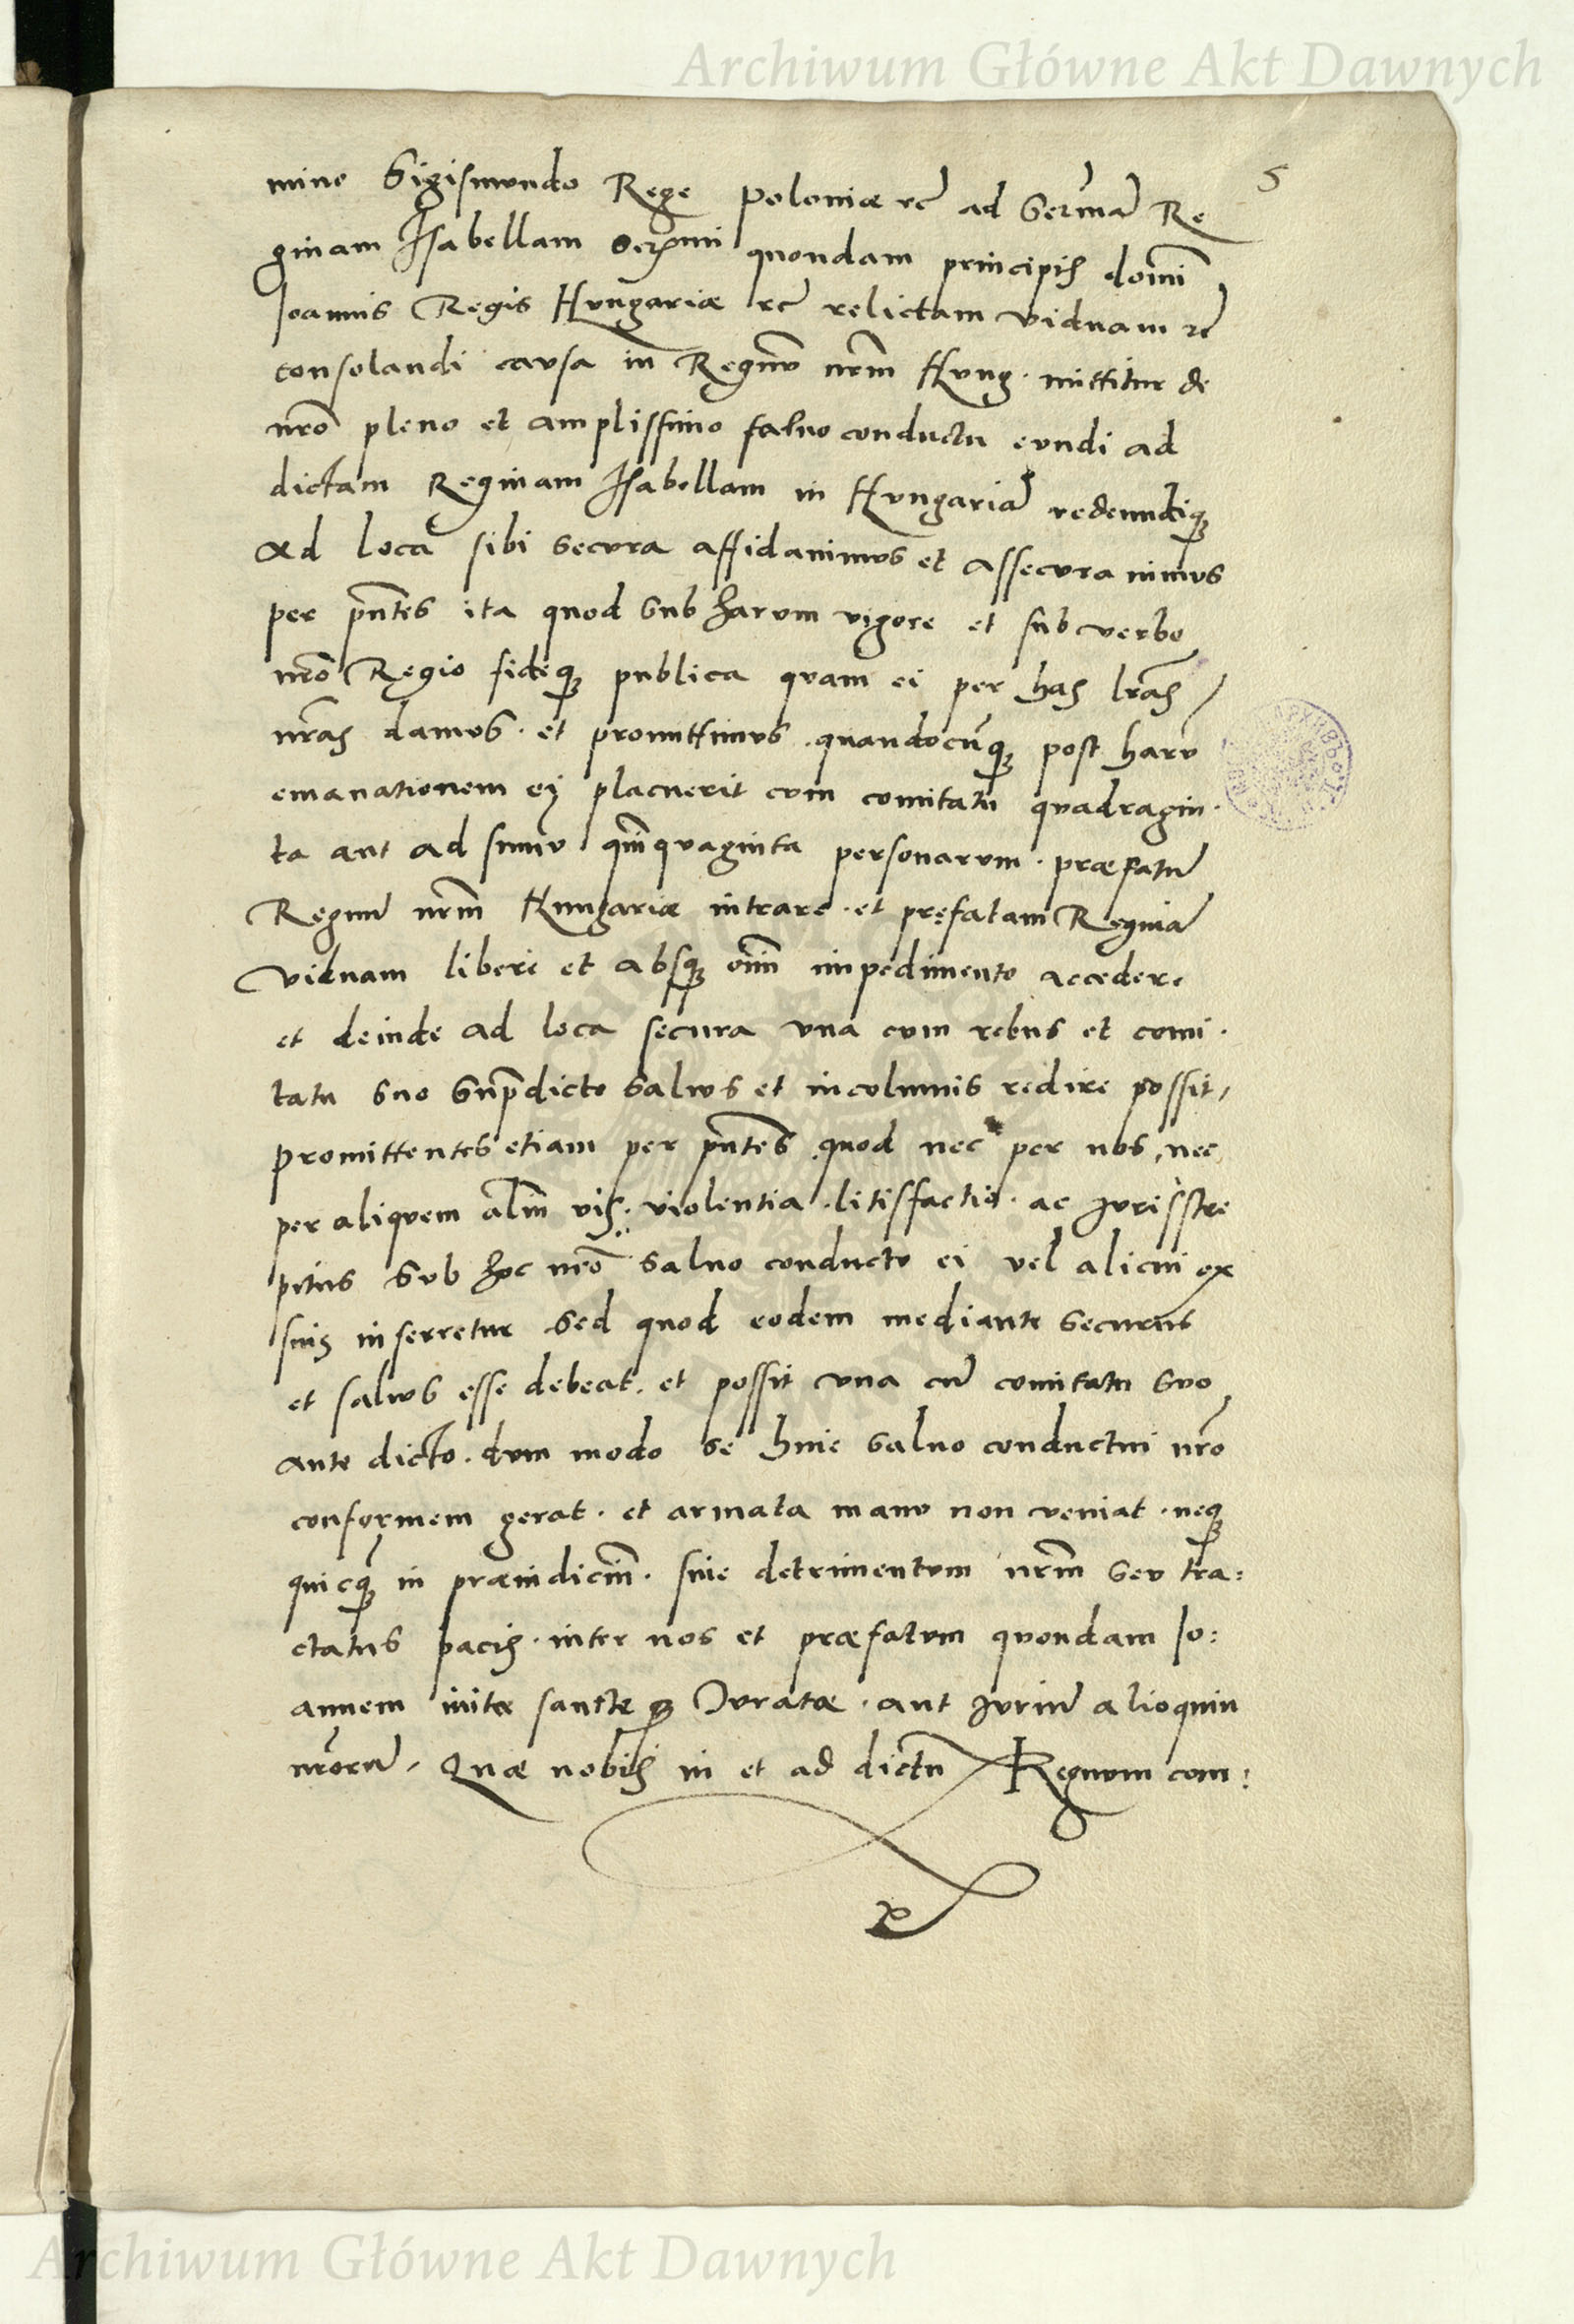 Archiwum Główne Akt Dawnych
5
mino Sigismundo Rege Poloniæ ꝛc̃ ad Serm̃ã Re
ginam Isabellam Serm̃i quondam principis domĩ
Joannis Regis Hungariæ ꝛc̃ relictam viduam ꝛc̃
consolandi causa in Regnũ nr̃m Hung. mittitur de
nr̃o pleno et amplissimo saluo conductu eundi ad
dictam Reginam Isabellam in Hungariã redeundiqꝫ
ad loca sibi secura affidauimus et assecurauimus
per pñtes ita quod sub harum vigore et sub verbo
nr̃o Regio fideqꝫ publica quam ei per has lr̃as /
nr̃as damus. et promittimus. quandocũqꝫ post harũ
emanationem ej placuerit cum comitatu quadragin.
ta aut ad sum̃ũ quĩquaginta personarum. præfatũ
Regnũ nr̃m Hungariæ intrare. et pręfatam Reginã
viduam libere et absqꝫ om̃i impedimento accedere
et deinde ad loca secura una cum rebus et comi.
tatu suo sup̃dicto saluus et incolumis redire possit,
promittentes etiam per pñtes quod nec per nos, nec
per aliquem aliũ vis. violentia. litisfactio. ac juris stre
pitus sub hoc nr̃o saluo conductu ei vel alicui ex
suis inferretur sed quod eodem mediante securus
et saluus esse debeat. et possit una cũ comitatu suo
ante dicto. dum modo se huic saluo conductui nr̃o
conformem gerat. et armata manu non veniat. neqꝫ
quicqꝫ in præiudiciũ. siue detrimentum nr̃m seu tra:
ctatus pacis. inter nos et præfatum quondam Jo:
annem initæ sancteqꝫ Juratæ. aut juriũ alioquin
nr̃orũ. Quæ nobis in et ad dictũ Regnum com:
Archiwum Główne Akt Dawnych